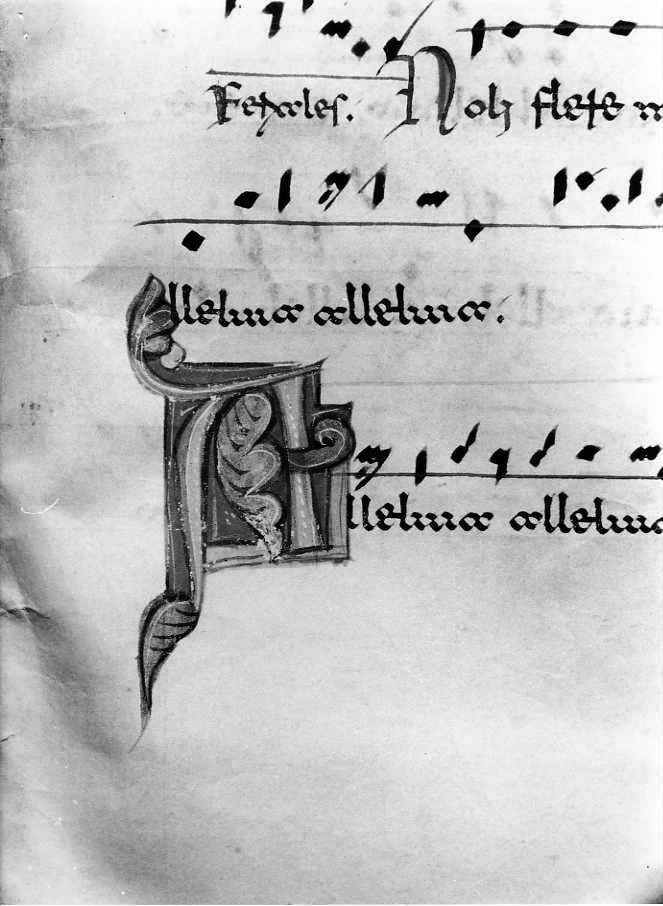 Feriales. Noli flere m
Alleluia alleluia.
Alleluia alleluia